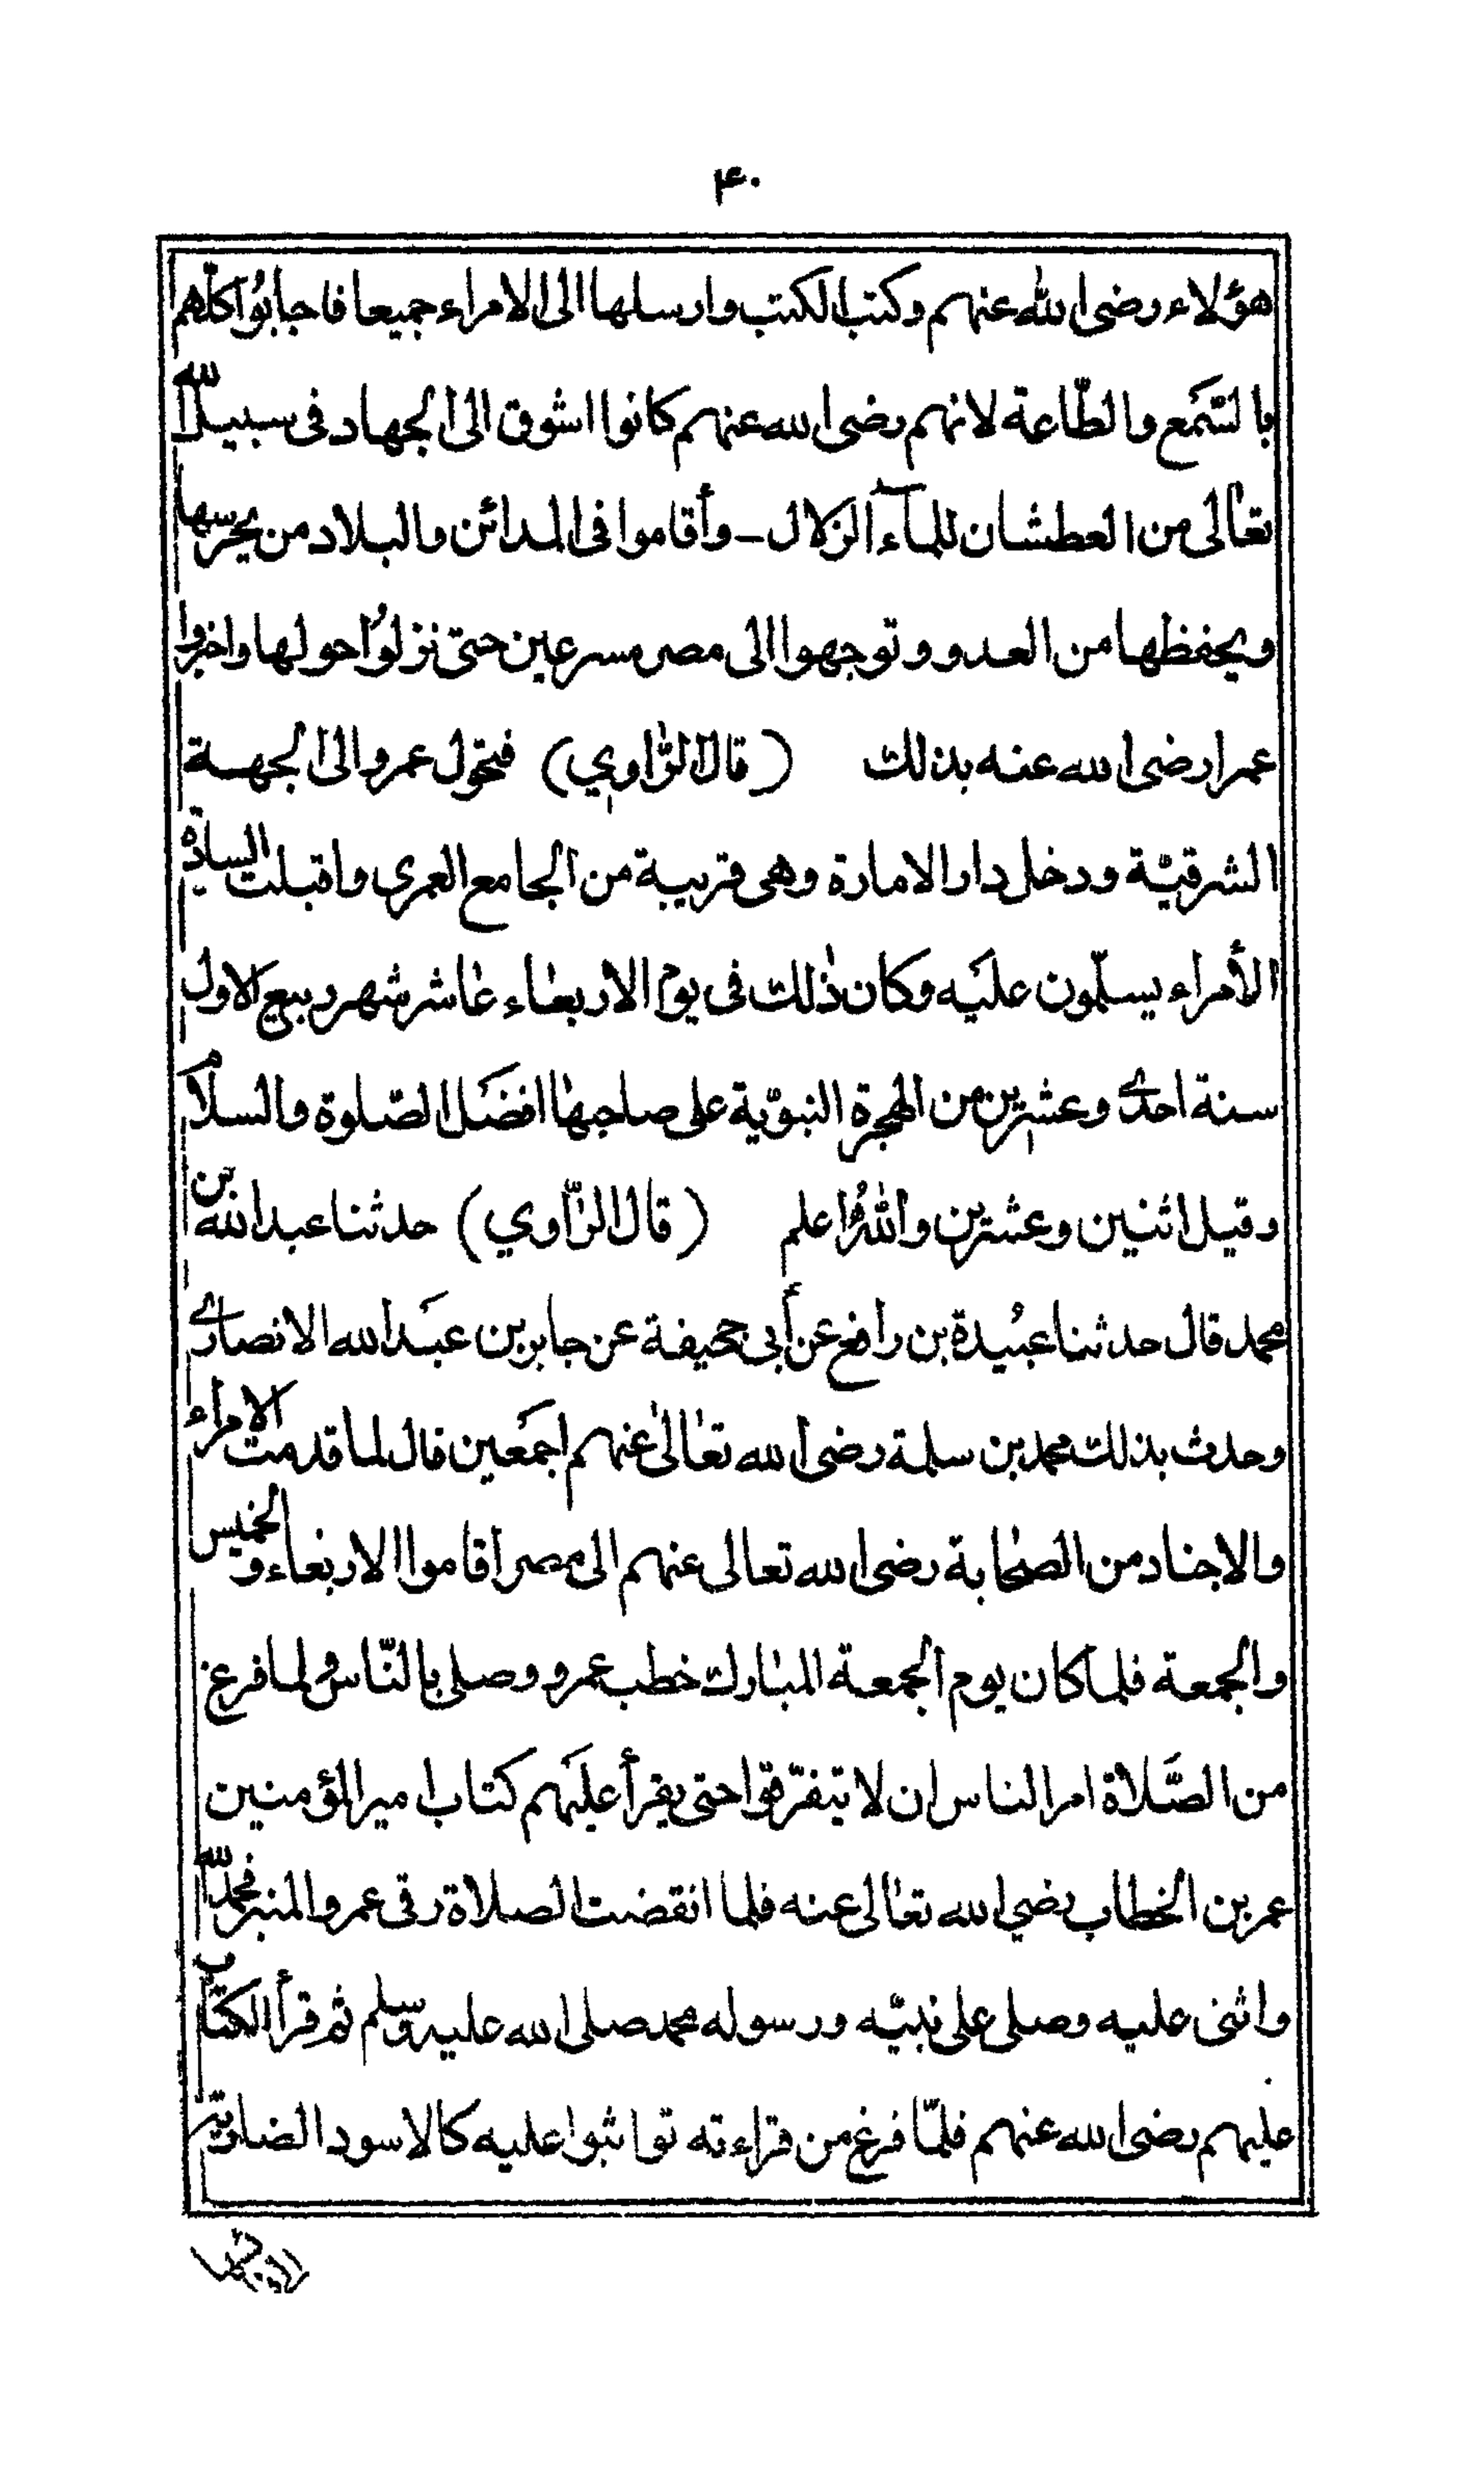 ۴۰
هؤلاء رضى الله عنهم وكتب الكتب وارسلها الى الامراء جميعا فاجابُوا كلّهم
بالسَّمع والطّاعة لانهم رضى الله عنهم كانوا اشوق الى الجهاد فى سبيل الله
تعالى من العطشان للمآء الزلال - وأقاموا فى المدائن والبلاد من يحرسها
ويحفظها من العدو وتوجهوا الى مصر مسرعين حتى نزلُوا حولها واخبروا
عمرا رضى الله عنه بذلك (قال الرّاوي) فتحول عمرو الى الجهة
الشرقيّة ودخل دار الامارة وهى قريبة من الجامع العمري واقبلت السادة
الأمراء يسلّمون عليَه وكان ذٰلك فى يوم الاربعاء عاشر شهر ربيع الاول
سنة احدى وعشرين من الهجرة النبوّية على صاحبها افضَل الصّلوة والسلام
وقيل اثنين وعشرين واللهُ اعلم (قال الرّاوي) حدثنا عبد الله بن
محمد قال حدثنا عبُيدة بن رافع عن أبى جحيفة عن جابر بن عبَد الله الانصارى
وحدث بذلك محمد بن سلمة رضى الله تعالىٰ عنهم اجمَعين قال لما قدمت الامراء
والاجناد من الصحابة رضى الله تعالى عنهم الى مصر اقاموا الاربعاء والخميس
والجمعة فلما كان يوم الجمعة المبارك خطب عمرو وصلى بالنّاس ولما فرغ
من الصَّلاة امر الناس ان لا يتفرّقوا حتى يقرأ عليَهم كتاب امير المؤمنين
عمر بن الخطاب رضي الله تعالى عنه فلما انقضت الصلاة رقى عمرو المنبر فحمد الله
واثنى عليه وصلى على نبيّه ورسوله محمد صلى الله عليه وسلم ثم قرأ الكتاب
عليهم رضى الله عنهم فلمّا فرغ من قراءته تواثبوا عليه كالاسود الضارية